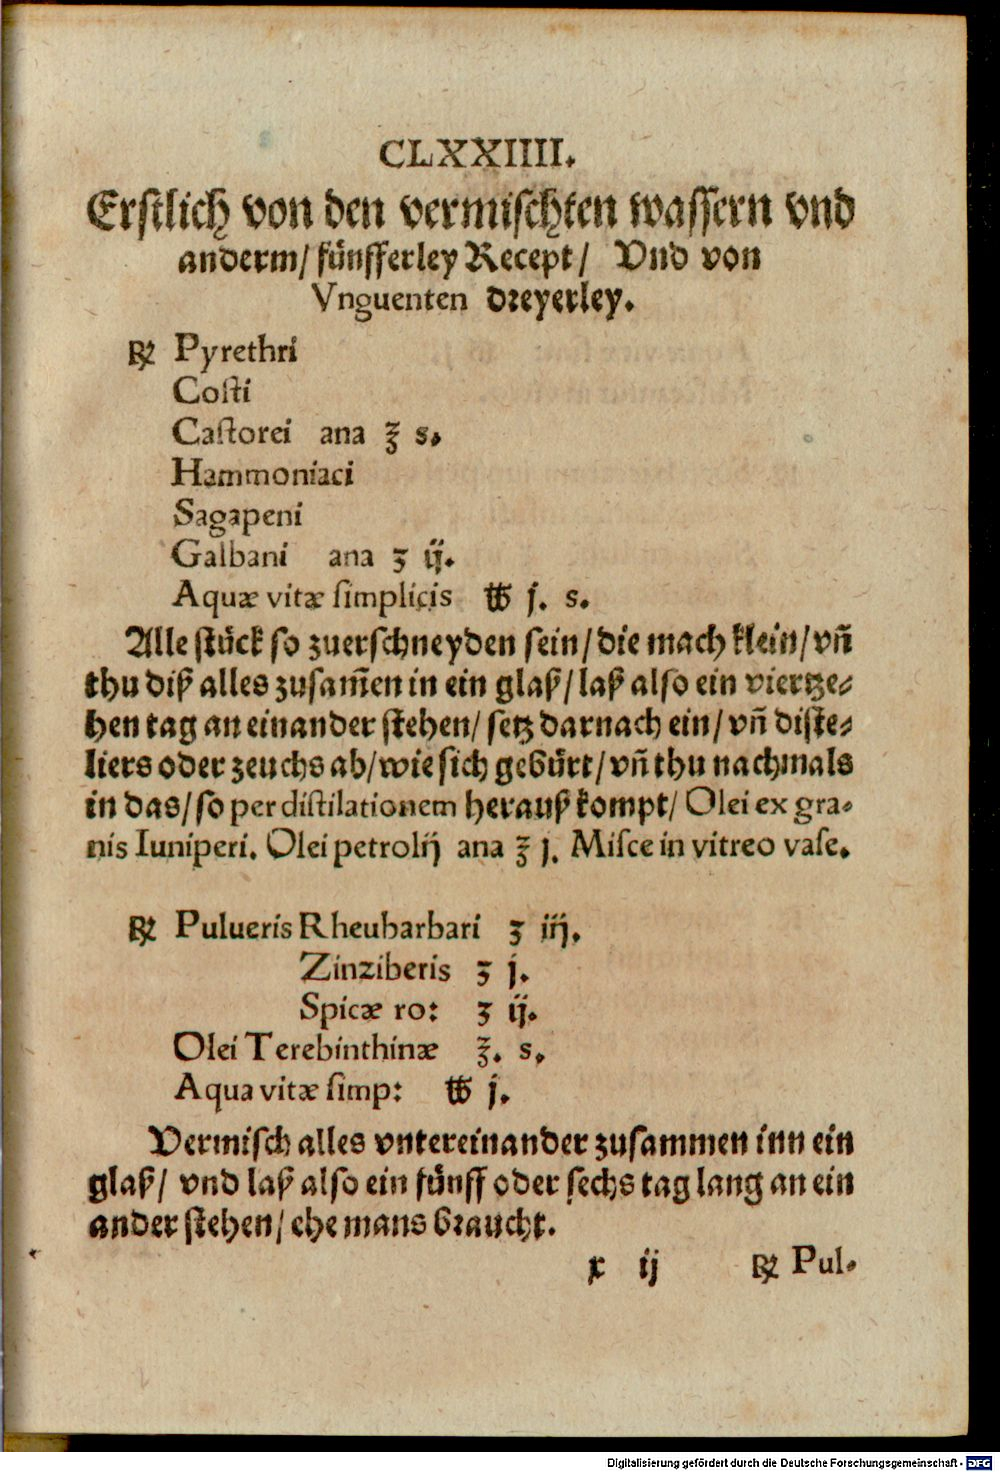 CLXXIIII.
Erstlich von den vermischten wassern vnd
anderm/ fünfferley Recept/ Vnd von
Vnguenten dreyerley.
℞ Pyrethri
Coſti
Caſtorei ana ℥ s.
Hammoniaci
Sagapeni
Galbani ana ʒ ij.
Aquæ vitæ ſimplicis ℔ j. s.
Alle stück so zuerschneyden sein/ die mach klein/ vñ
thu diß alles zusam̃en in ein glaß/ laß also ein viertze⸗
hen tag an einander stehen/ setz darnach ein/ vñ diste⸗
liers oder zeuchs ab/ wie sich gebürt/ vñ thu nachmals
in das/ so per diſtilationem herauß kompt/ Olei ex gra-
nis Iuniperi. Olei petrolij ana ℥ j. Miſce in vitreo vaſe.
℞ Pulueris Rheubarbari ʒ iij.
Zinziberis ʒ j.
Spicæ ro: ʒ ij.
Olei Terebinthinæ ℥. s.
Aqua vitæ ſimp: ℔ j.
Vermisch alles vntereinander zusammen inn ein
glaß/ vnd laß also ein fünff oder sechs tag lang an ein
ander stehen/ ehe mans braucht.
x ij ℞ Pul-
Digitalisierung gefördert durch die Deutsche Forschungsgemeinschaft - DFG